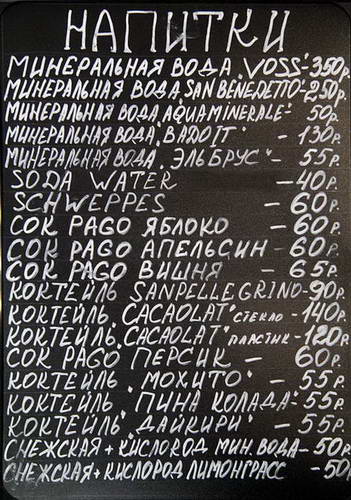 НАПИТКИ
МИНЕРАЛЬНАЯ ВОДА "VOSS" - 350р.
МИНЕРАЛЬНАЯ ВОДА "SAN BENEDETTO" - 250р.
МИНЕРАЛЬНАЯ ВОДА "AQUA MINERALE" - 50р.
МИНЕРАЛЬНАЯ ВОДА "BADOIT" - 130р.
МИНЕРАЛЬНАЯ ВОДА "ЭЛЬБРУС" - 55р.
SODA WATER - 40р.
SCHWEPPES - 60р.
СОК PAGO ЯБЛОКО - 60р.
СОК PAGO АПЕЛЬСИН - 60р.
СОК PAGO ВИШНЯ - 65р.
КОКТЕЙЛЬ SANPELLEGRINO - 90р.
КОКТЕЙЛЬ "CACAOLAT" СТЕКЛО - 140р.
КОКТЕЙЛЬ "CACAOLAT" ПЛАСТИК - 120р.
СОК PAGO ПЕРСИК - 60р.
КОКТЕЙЛЬ "МОХИТО" - 55р.
КОКТЕЙЛЬ "ПИНА КОЛАДА" - 55р.
КОКТЕЙЛЬ "ДАЙКИРИ" - 55р.
СНЕЖСКАЯ + КИСЛОРОД МИН. ВОДА - 50р.
СНЕЖСКАЯ + КИСЛОРОД ЛИМОНГРАСС - 50р.